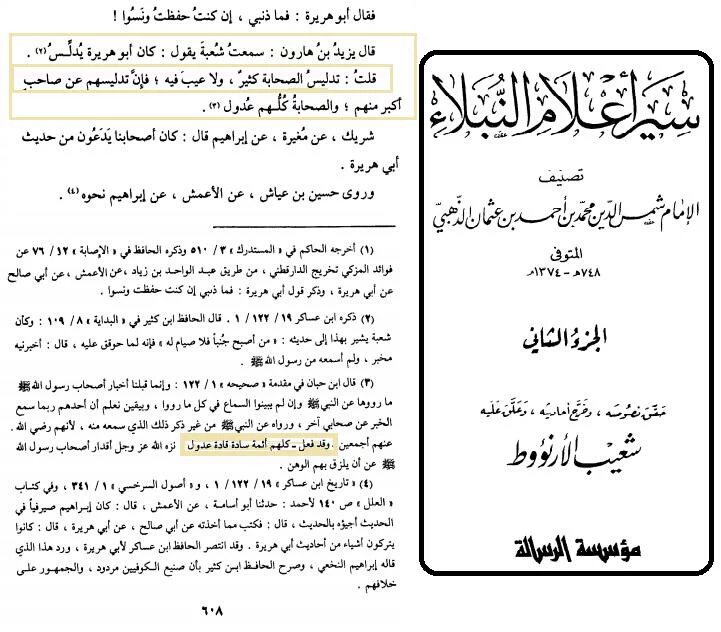 فقال أبو هريرة : فما ذنبي ، إن كنتُ حفظتُ ونَسُوا !
قال يزيدُ بنُ هارون : سمعتُ شُعبةَ يقول : كان أبو هريرة يُدلِّسُ (٢) .
قلتُ : تدليسُ الصحابة كثيرٌ ، ولا عيبَ فيه ؛ فإنَّ تدليسهم عن صاحبٍ
أكبر منهم ؛ والصحابةُ كُلُّهم عُدول (٣) .
شريك ، عن مُغيرة ، عن إبراهيم قال : كان أصحابنا يَدَعُون من حديث
أبي هريرة .
وروى حسين بن عياش ، عن الأعمش ، عن إبراهيم نحوه (٤) .
(١) أخرجه الحاكم في « المستدرك » ٣ / ٥١٠ وذكره الحافظ في « الإصابة » ١٢ / ٧٦ عن
فوائد المزكي تخريج الدارقطني ، من طريق عبد الواحد بن زياد ، عن الأعمش ، عن أبي صالح
عن أبي هريرة ، وذكر قول أبي هريرة : فما ذنبي إن كنت حفظت ونسوا .
(٢) ذكره ابن عساكر ١٩ / ١٢٢ / ١ . قال الحافظ ابن كثير في « البداية » ٨ / ١٠٩ : وكأن
شعبة يشير بهذا إلى حديثه : « من أصبح جُنباً فلا صيام له » فإنه لما حوقق عليه ، قال : أخبرنيه
مخبر ، ولم أسمعه من رسول الله ﷺ .
(٣) قال ابن حبان في مقدمة « صحيحه » ١ / ١٢٢ : وإنما قبلنا أخبار أصحاب رسول الله ﷺ
ما رووها عن النبي ﷺ وإن لم يبينوا السماع في كل ما رووا ، وبيقين نعلم أن أحدهم ربما سمع
الخبر عن صحابي آخر ، ورواه عن النبي ﷺ من غير ذكر ذلك الذي سمعه منه ، لأنهم رضي الله
عنهم أجمعين . وقد فعل ـ كلهم أئمة سادة قادة عدول نزه الله عز وجل أقدار أصحاب رسول الله
ﷺ عن أن يلزق بهم الوهن .
(٤) « تاريخ ابن عساكر » ١٩ / ١٢٢ / ١ ، و « أصول السرخسي » ١ / ٣٤١ ، وفي كتاب
« العلل » ص ١٤٠ لأحمد : حدثنا أبو أسامة ، عن الأعمش ، قال : كان إبراهيم صيرفياً في
الحديث أجيؤه بالحديث ، قال : فكتب مما أخذته عن أبي صالح ، عن أبي هريرة ، قال : كانوا
يتركون أشياء من أحاديث أبي هريرة . وقد انتصر الحافظ ابن عساكر لأبي هريرة ، ورد هذا الذي
قاله إبراهيم النخعي ، وصرح الحافظ ابن كثير بأن صنيع الكوفيين مردود ، والجمهور على
خلافهم .
٦٠٨
سير أعلام النبلاء
تصنيف
الإمام شمس الدين محمد بن أحمد بن عثمان الذهبي
المتوفى
٧٤٨ هـ - ١٣٧٤ م
الجزء الثاني
حقق نصوصه ، وخرج أحاديثه ، وعلق عليه
شعيب الأرنؤوط
مؤسسة الرسالة